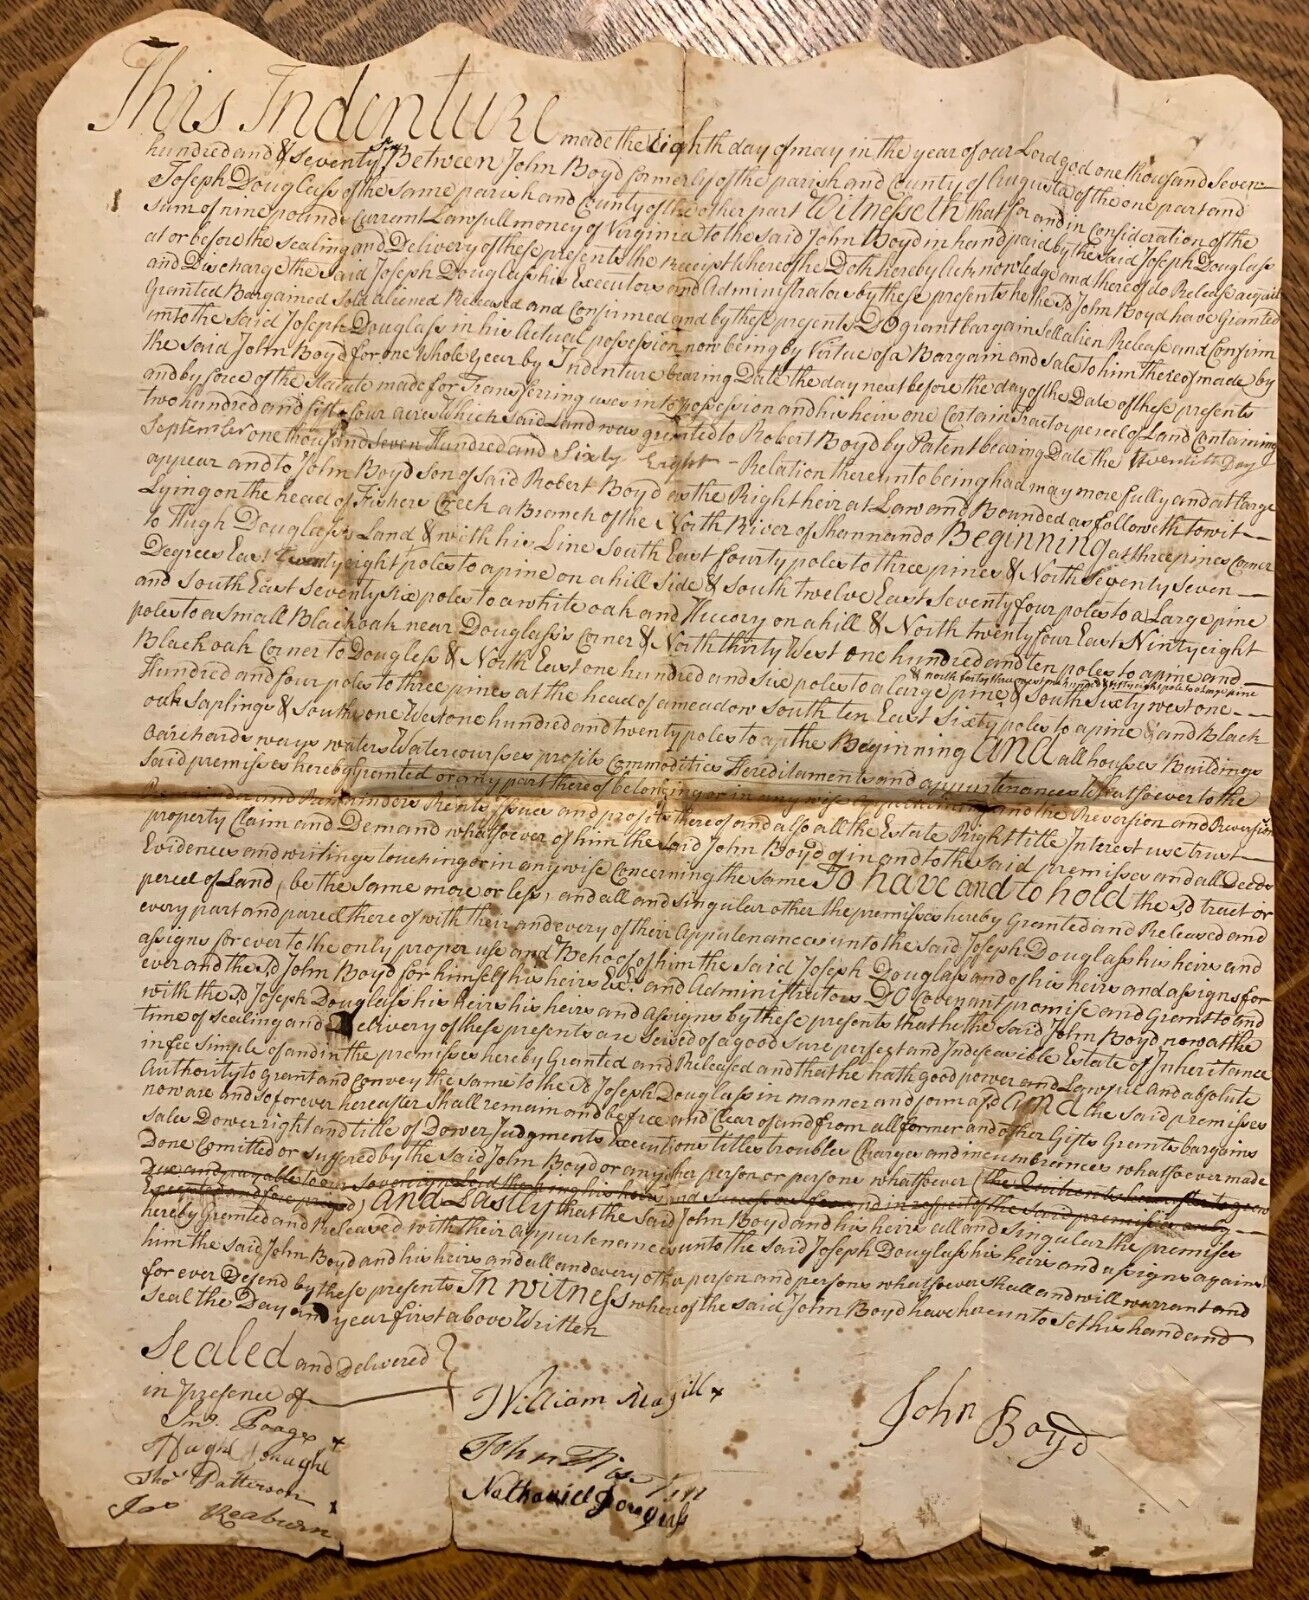 This Indenture made the Eighth day of may in the year of our Lord god one thousand seven
hundred and & seventy six Between John Boyd formerly of the parish and County of Augusta of the one part and
Joseph Douglass of the same parish and County of the other part Witnesseth that for and in Consideration of the
sum of nine pounds Current Lawfull money of Virginia to the said John Boyd in hand paid by the said Joseph Douglass
at or before the sealing and Delivery of these presents the receipt whereof he Doth hereby Acknowledge and thereof do Release acquit
and Discharge the said Joseph Douglass his Executors and Administrators by these presents he the sd John Boyd have Granted
Granted Bargained Sold aliened Released and Confirmed and by these presents Do grant bargain sell alien Release and Confirm
unto the said Joseph Douglass in his Actual possession now being by Virtue of a Bargain and sale to him thereof made by
the said John Boyd for one whole year by Indenture bearing Date the day next before the day of the Date of these presents
and by force of the Statute made for Transferring uses into possession and his heirs one Certain Tract or percel of Land Containing
two hundred and fifty four acres Which said Land was granted to Robert Boyd by Patent bearing Date the twentieth Day
September one thousand seven Hundred and Sixty Eight - Relation thereunto being had may more fully and at Large
appear and to John Boyd son of said Robert Boyd as the Right heir at Law and Bounded as followeth to wit
Lying on the head of Fishers Creek a Branch of the North River of Shannando Beginning at three pines Corner
to Hugh Douglass's Land & with his Line South East fourty poles to three pines & North Seventy Seven
Degrees East twenty eight poles to a pine on a hill Side & South twelve East Seventy four poles to a Large pine
and South East seventy six poles to a white oak and Hiccory on a hill & North twenty four East Ninty eight
poles to a Small Black oak near Douglass's Corner & North thirty West one hundred and ten poles to a pine and
Black oak Corner to Douglass & North East one hundred and six poles to a large pine & South Sixty west one
& north forty three west poles to a large pine
Hundred and four poles to three pines at the head of a meadow South ten East Sixty poles to a pine & and Black
oak Saplings & South one West one hundred and twenty poles to the Beginning And all houses Buildings
oarchards ways waters Watercourses profits Commodities Hereditaments and appurtenances Whatsoever to the
said premisses hereby Granted or any part thereof belonging or in any wise appertaining and the Reversion and Reversions
Remainder and Remainders Rents Issues and profits thereof and also all the Estate Right title Interest use trust
property Claim and Demand whatsoever of him the said John Boyd of in and to the said premisses and all Deeds
Evidences and writings touching or in any wise Concerning the same To have and to hold the sd tract or
percel of Land, be the same more or less, and all and singular other the premisses hereby Granted and Released and
every part and parcel there of with their and every of their Appurtenances unto the said Joseph Douglass his heirs and
assigns for ever to the only proper use and Behoof of him the said Joseph Douglass and of his heirs and assigns for
ever and the sd John Boyd for himself his heirs Exrs and Administrators Do Covenant promise and Grant to and
with the sd Joseph Douglass his heirs his heirs and Assigns by these presents that he the said John Boyd now at the
time of sealing and Delivery of these presents are Seised of a good Sure perfect and Indefeasible Estate of Inheritance
in fee simple of and in the premisses hereby Granted and Released and that he hath good power and Lawful and absolute
Authority to grant and Convey the same to the sd Joseph Douglass in manner and form afd And the said premisses
now are and so forever hereafter Shall remain and be free and Clear of and from all former and other Gifts Grants bargains
sales Dower right and title of Dower Judgments Executions titles troubles Charges and incumbrances whatsoever made
Done Comitted or suffered by the said John Boyd or any other person or persons whatsoever (the Quitrents hereafter to grow
Due and payable to our sovereign Lord the king his heirs and Successors for and in respect of the said premisses only
Excepted and fore prized) And Lastly that the said John Boyd and his heirs all and singular the premisses
hereby Granted and Released with their Appurtenances unto the said Joseph Douglass his heirs and assigns against
him the said John Boyd and his heirs and all and every other person and persons whatsoever shall and will warrant and
for ever Defend by these presents In witness whereof the said John Boyd have hereunto Set his hand and
Seal the Day and year first above Written
Sealed and Delivered
in presence of
Jno. Poage
Hugh
Thos Patterson
Jas Reaburn
William Magill
John
Nathaniel Douglass
John Boyd